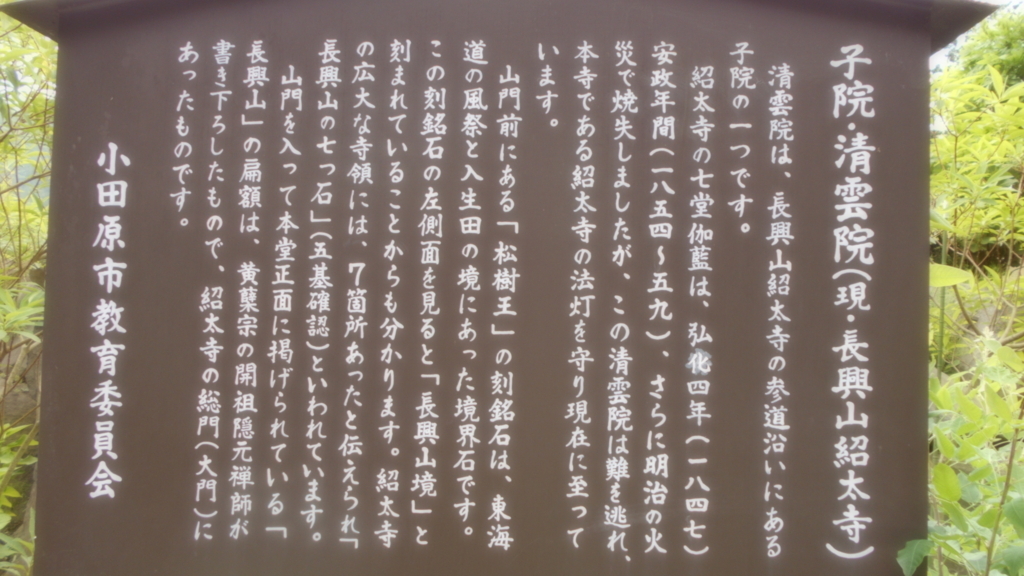 子院・清雲院(現・長興山紹太寺)
清雲院は、長興山紹太寺の参道沿いにある
子院の一つです。
紹太寺の七堂伽藍は、弘化四年(一八四七)
安政年間(一八五四～五九)、さらに明治の火
災で焼失しましたが、この清雲院は難を逃れ、
本寺である紹太寺の法灯を守り現在に至って
います。
山門前にある「松樹王」の刻銘石は、東海
道の風祭と入生田の境にあった境界石です。
この刻銘石の左側面を見ると「長興山境」と
刻まれていることからも分かります。紹太寺
の広大な寺領には、7箇所あったと伝えられ「
長興山の七つ石」(五基確認)といわれています。
山門を入って本堂正面に掲げられている「
長興山」の扁額は、黄檗宗の開祖隠元禅師が
書き下ろしたもので、紹太寺の総門(大門)に
あったものです。
小田原市教育委員会